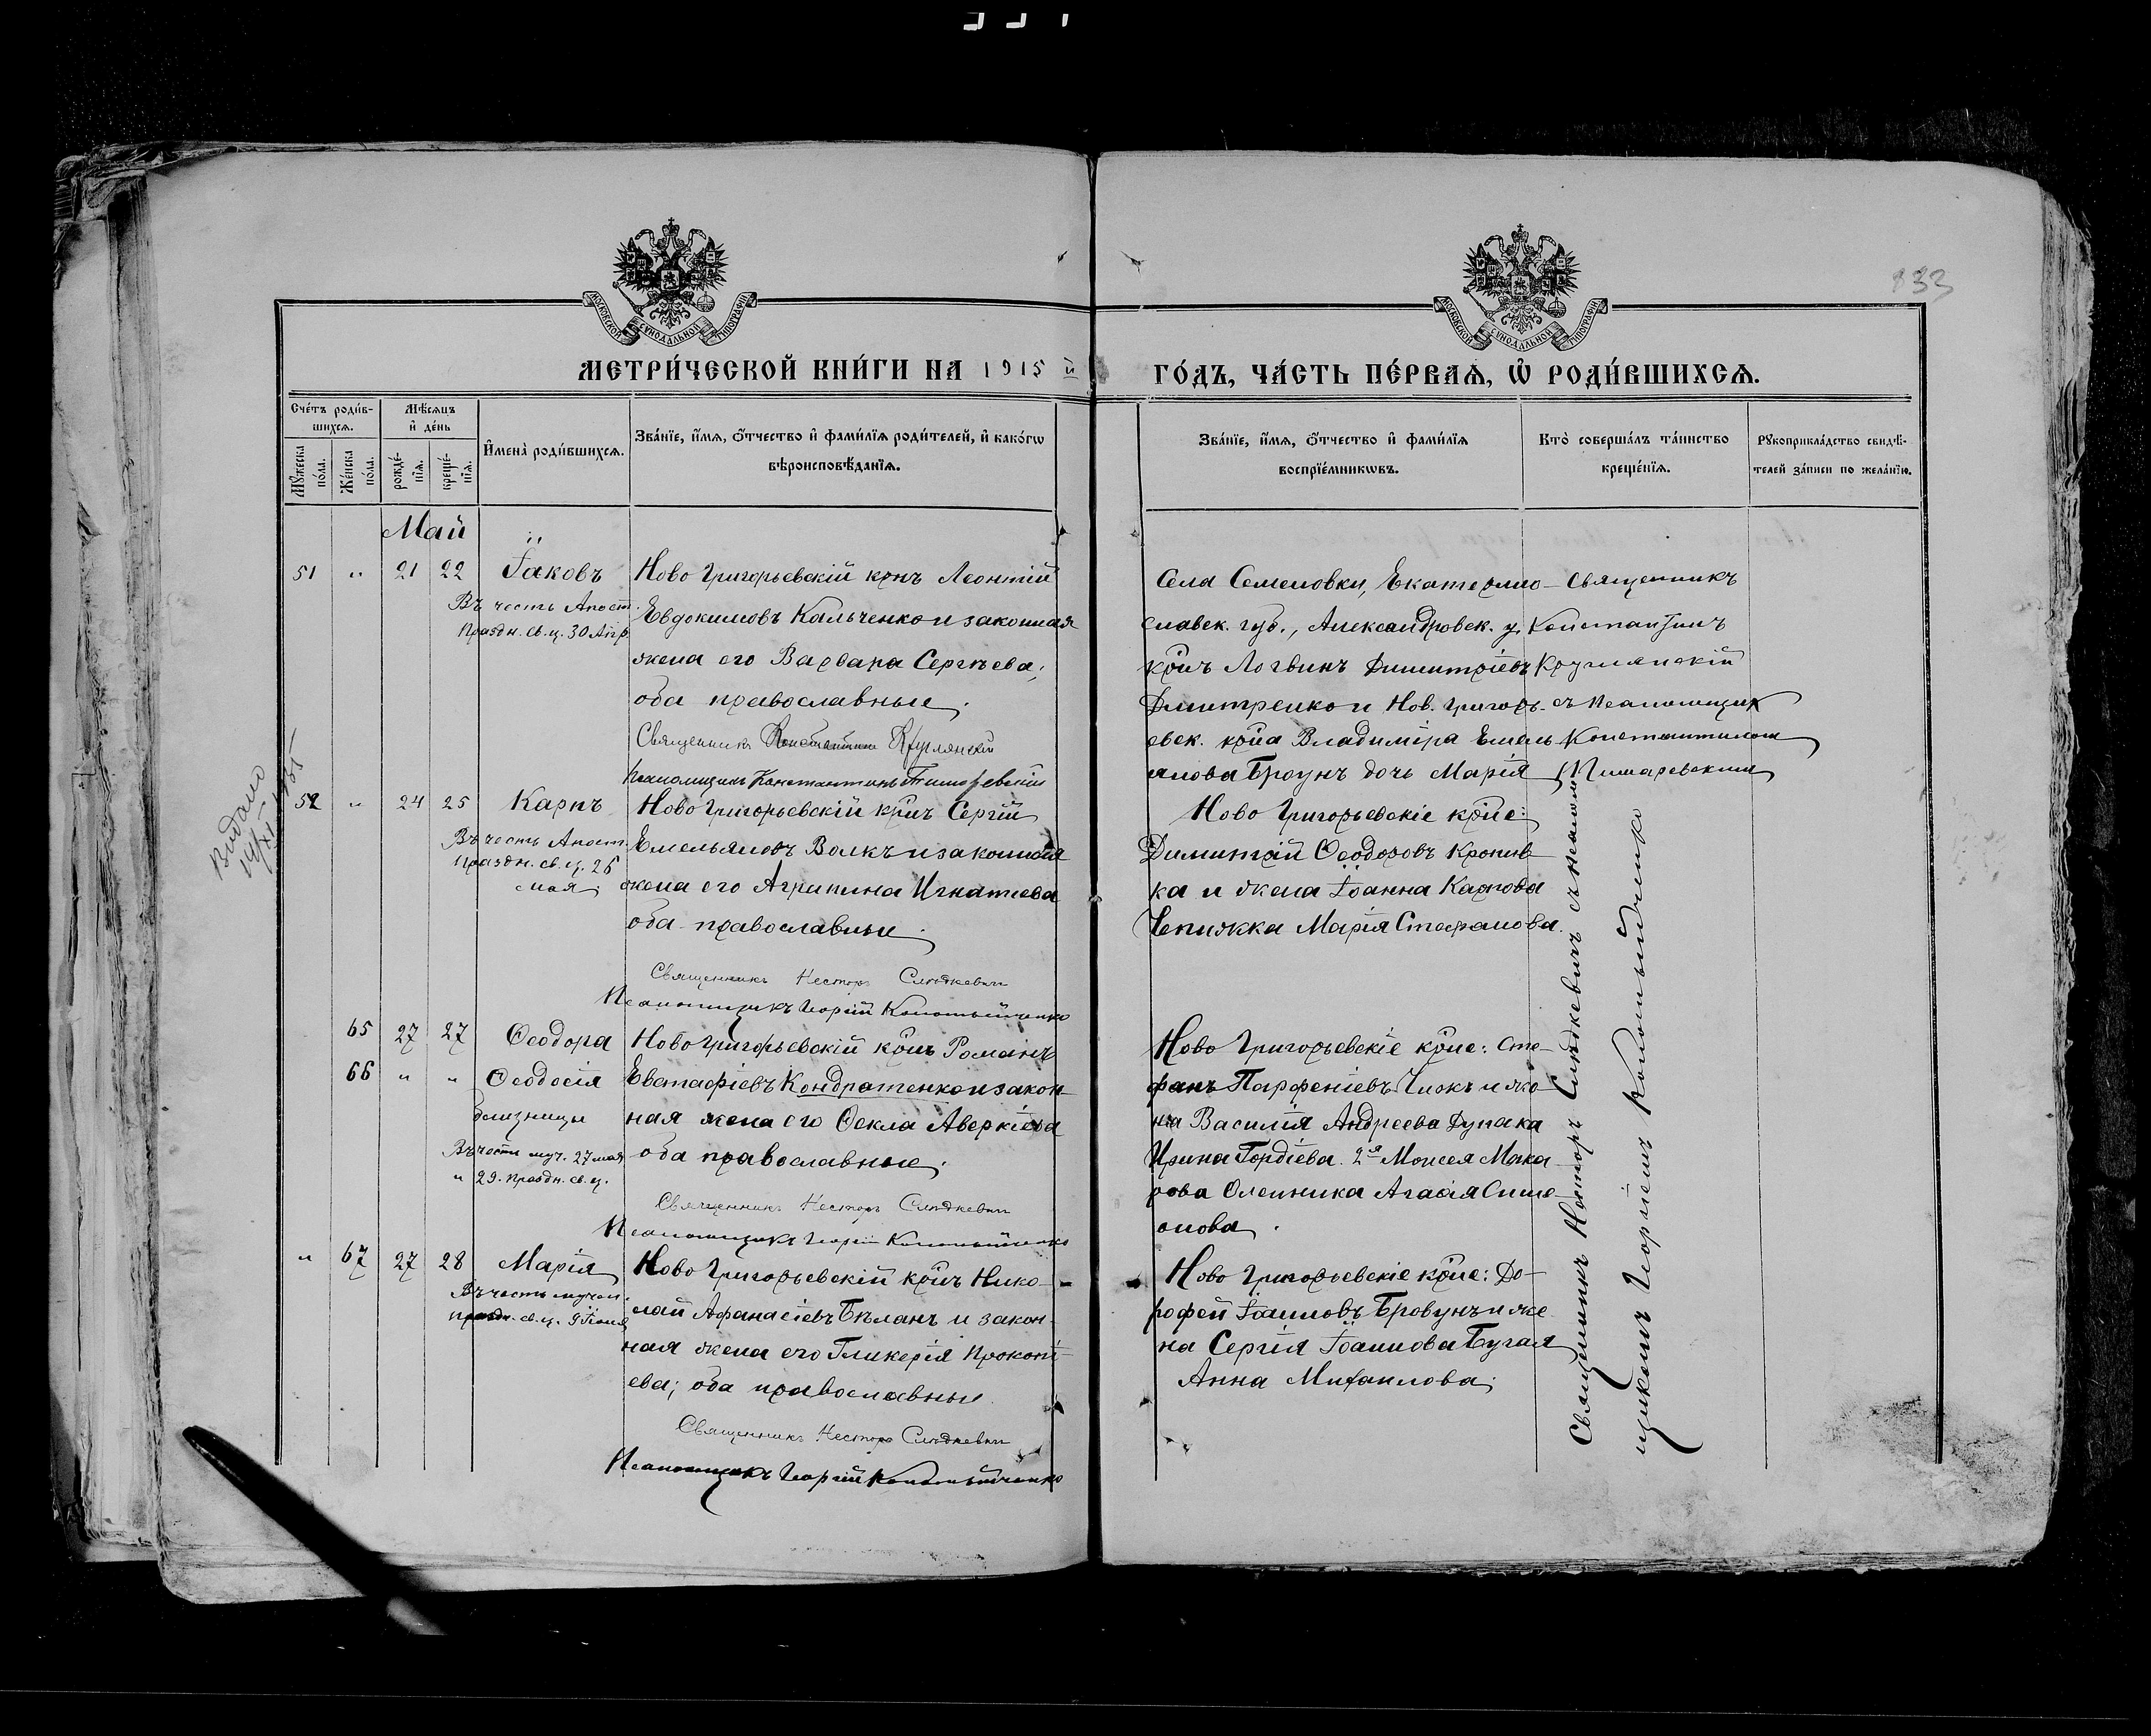 833
МОСКОВСКОЙ СѴНОДАЛЬНОЙ ТИПОГРАФІИ
МОСКОВСКОЙ СѴНОДАЛЬНОЙ ТИПОГРАФІИ
МЕТРИ́ЧЕСКОЙ КНИ́ГИ НА 1915 й
ГО́ДЪ, ЧА́СТЬ ПЕ́РВАѦ, Ѡ҆ РОДИ́ВШИХСѦ.
Сче́тъ роди́в-
шихсѧ.
Мꙋ́жеска по́ла.
Же́нска по́ла.
Мѣ́сѧцъ
и҆ де́нь
рожде́-нїѧ.
креще́-нїѧ.
И҆мена̀ роди́вшихсѧ.
Зва́нїе, и҆́мѧ, ѻ҆́тчество и҆ фами́лїѧ роди́телей, и҆ како́гѡ
вѣроисповѣ́данїѧ.
Зва́нїе, и҆́мѧ, ѻ҆́тчество и҆ фами́лїѧ
воспрїе́мникѡвъ.
Кто̀ соверша́лъ та́инство
креще́нїѧ.
Рꙋкоприкла́дство свидѣ́-
телей за́писи по жела́нїю.
Май
51 " 21 22 Іаковъ
Въ честь Апост.
Праздн. св. ц. 30 Апр.
Ново Григорьевскій крнъ Леонтій
Евдокимовъ Кальченко и законная
жена его Варвара Сергѣева;
оба православные.
Священникъ Константинъ Круглянскій
Псаломщикъ Константинъ
Села Семеновки, Екатерино-
славск. губ., Александровск. у.
крнъ Логвинъ Димитріевъ
Дмитренко и Нов. Григорь-
евск. крна Владиміра Емель
янова Броунъ дочь Марія
Священникъ
Константинъ
Круглянскій
съ псаломщик
Константином
Видано
52 " 24 25 Карпъ
Въ честь Апост.
Праздн. св. ц. 26
мая.
Ново Григорьевскій крнъ Сергій
Емельяновъ Волкъ и законная
жена его Агрипина Игнатиева
оба православные.
Священникъ Несторъ
Псаломщикъ Георгій
Ново Григорьевскіе крне:
Димитрій Ѳеодоровъ Кропив
ка и жена Іоанна Карпова
Чепижка Марія Стефанова.
65 27 27 Ѳеодора
66 " " Ѳеодосія
близницы
Въ честь муч. 27 мая
и 29. Праздн. св. ц.
Ново Григорьевскій крнъ Романъ
Евстафіевъ Кондратенко и закон-
ная жена его Ѳекла Аверкіева
оба православные.
Священникъ Несторъ
Псаломщикъ Георгій
Ново Григорьевскіе крне: Сте-
фанъ Парфеніевъ и же
на Василія Андреева Дупака
Ирина Гордіева. 2я Моисея Мака
рова Олейника Агафія Симе-
онова.
" 67 27 28 Марія
Въ честь мучен.
праздн. св. ц. 9 Іюня
Ново Григорьевскій крнъ Нико-
лай Афанасіевъ Бѣланъ и закон-
ная жена его Гликерія Прокопі-
ева; оба православные.
Священникъ Несторъ
Псаломщикъ Георгій
Ново Григорьевскіе крне: До-
рофей Іоанновъ Бровунъ и же
на Сергія Іоаннова Бугая
Анна Михаилова.
Священникъ Несторъ съ псалом
щикомъ Георгіемъ